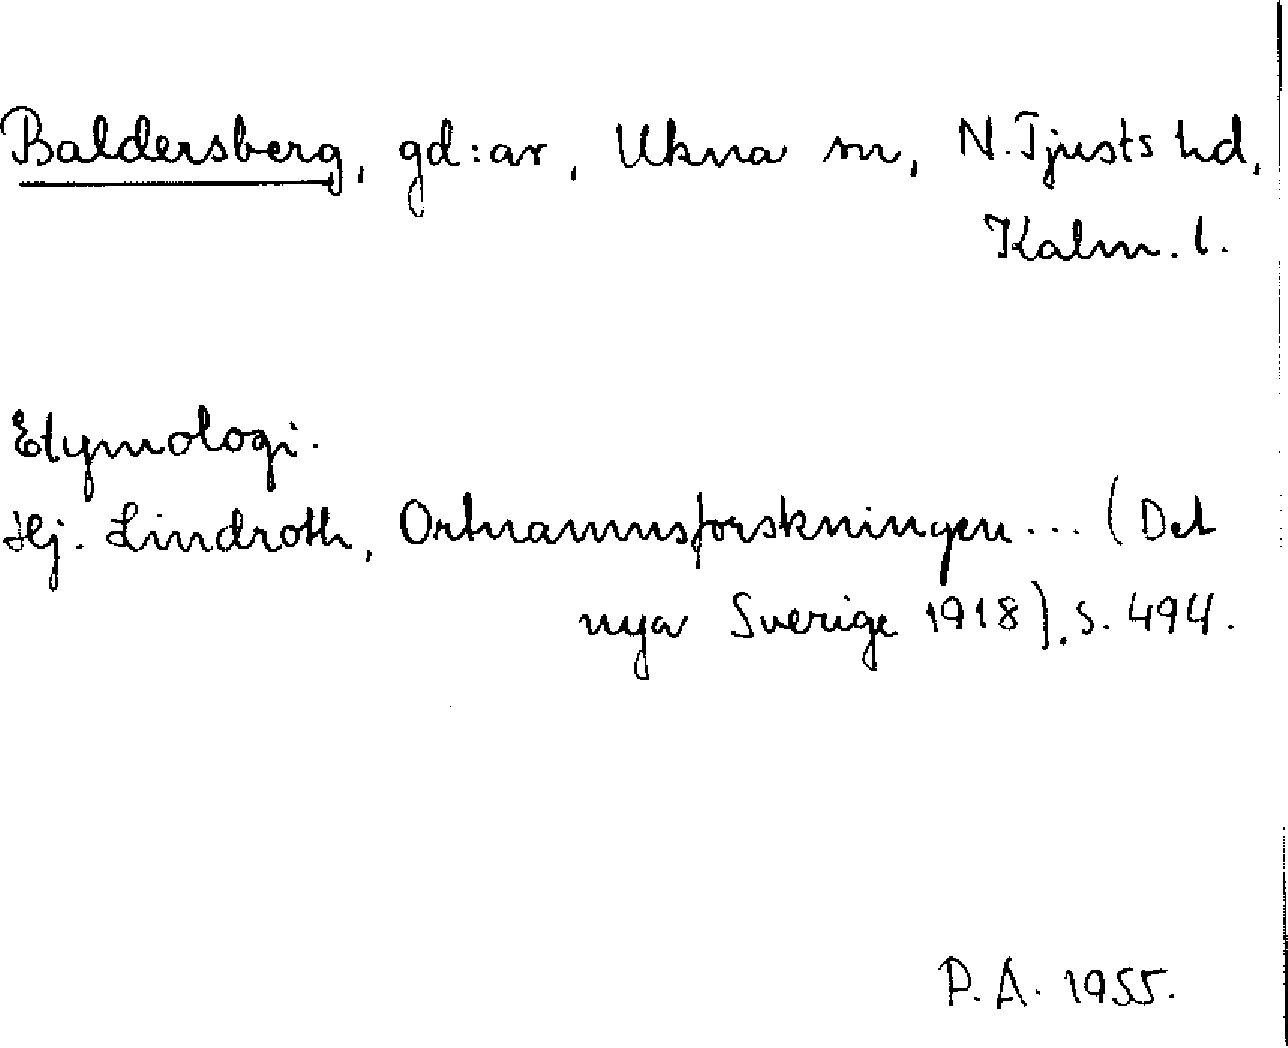 Baldersberg, gd:ar, Ukna sn, N. Tjusts hd,
Kalm. l.
Etymologi.
Hj. Lindroth, Ortnamnsforskningen... (Det
nya Sverige 1918), s. 494.
P. A. 1955.